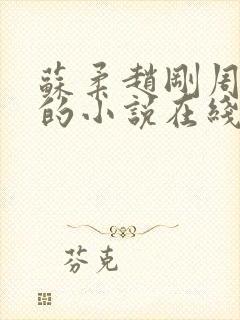 蘇柔趙剛周
的小說在綫
芬克